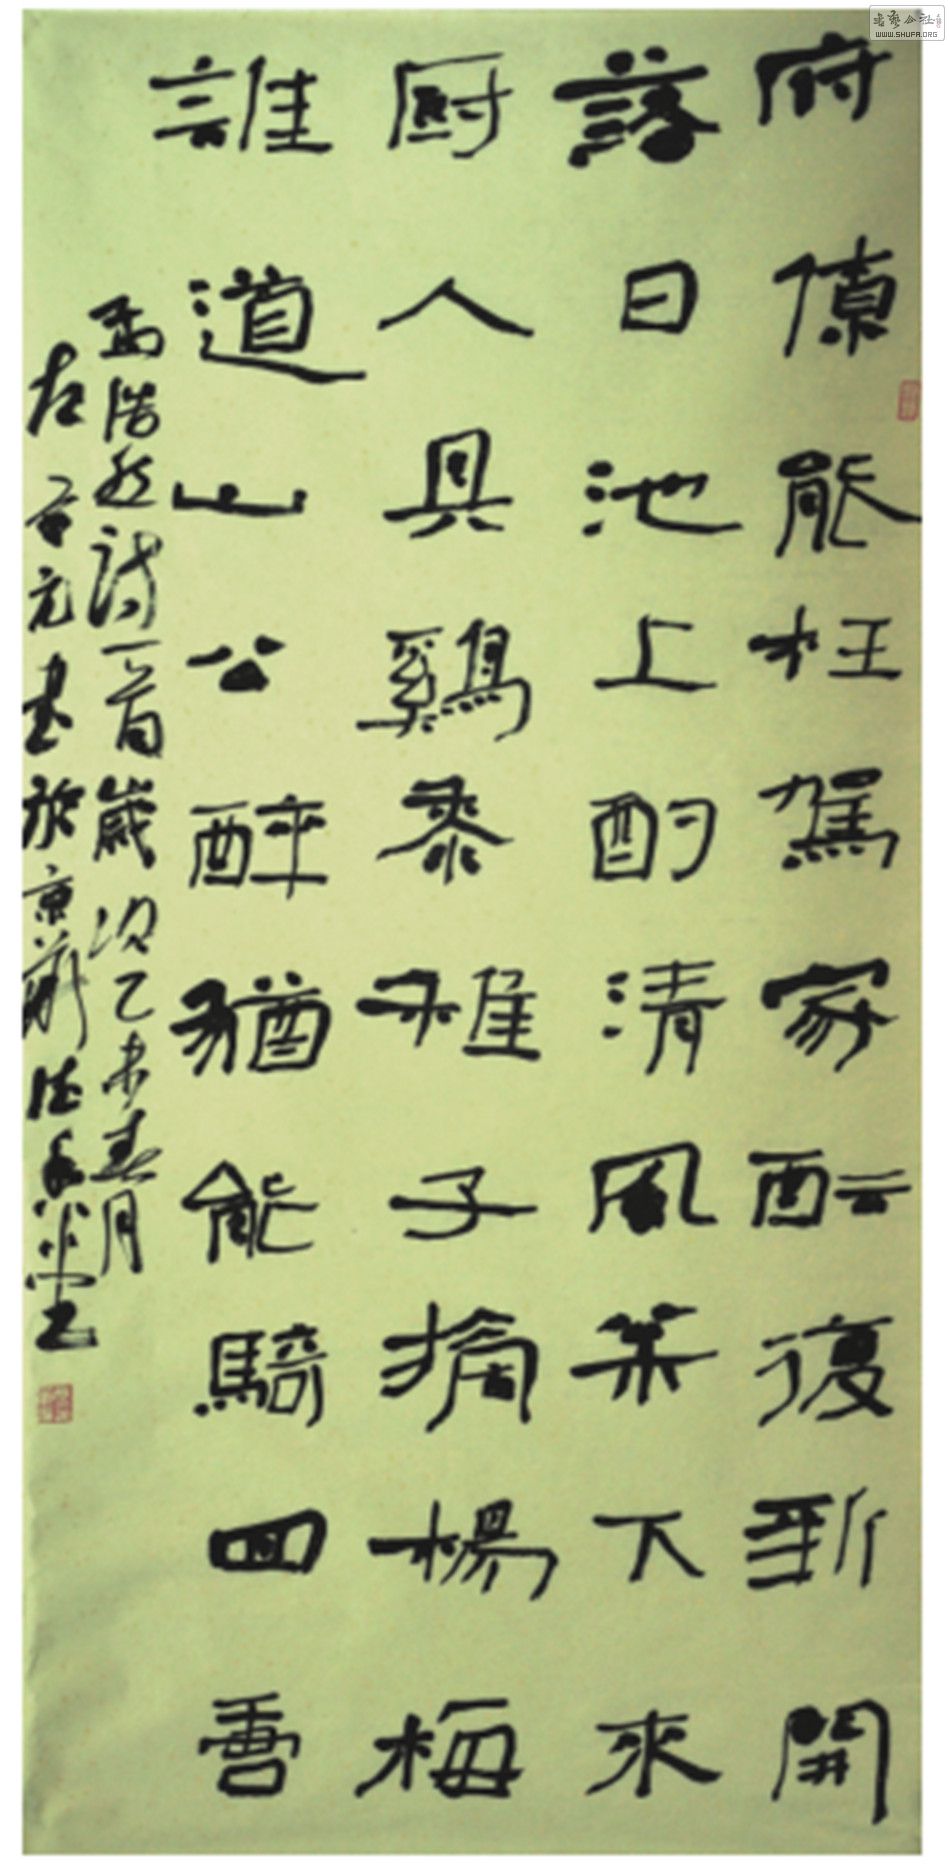 书艺公社
WWW.SHUFA.ORG
府僚能枉駕家酝復新開
落日池上酌清風枩下來
厨人具鷄黍稚子摘楊梅
誰道山公醉猶能騎
孟浩然詩一首歲次乙未春月
左元書於京華堂